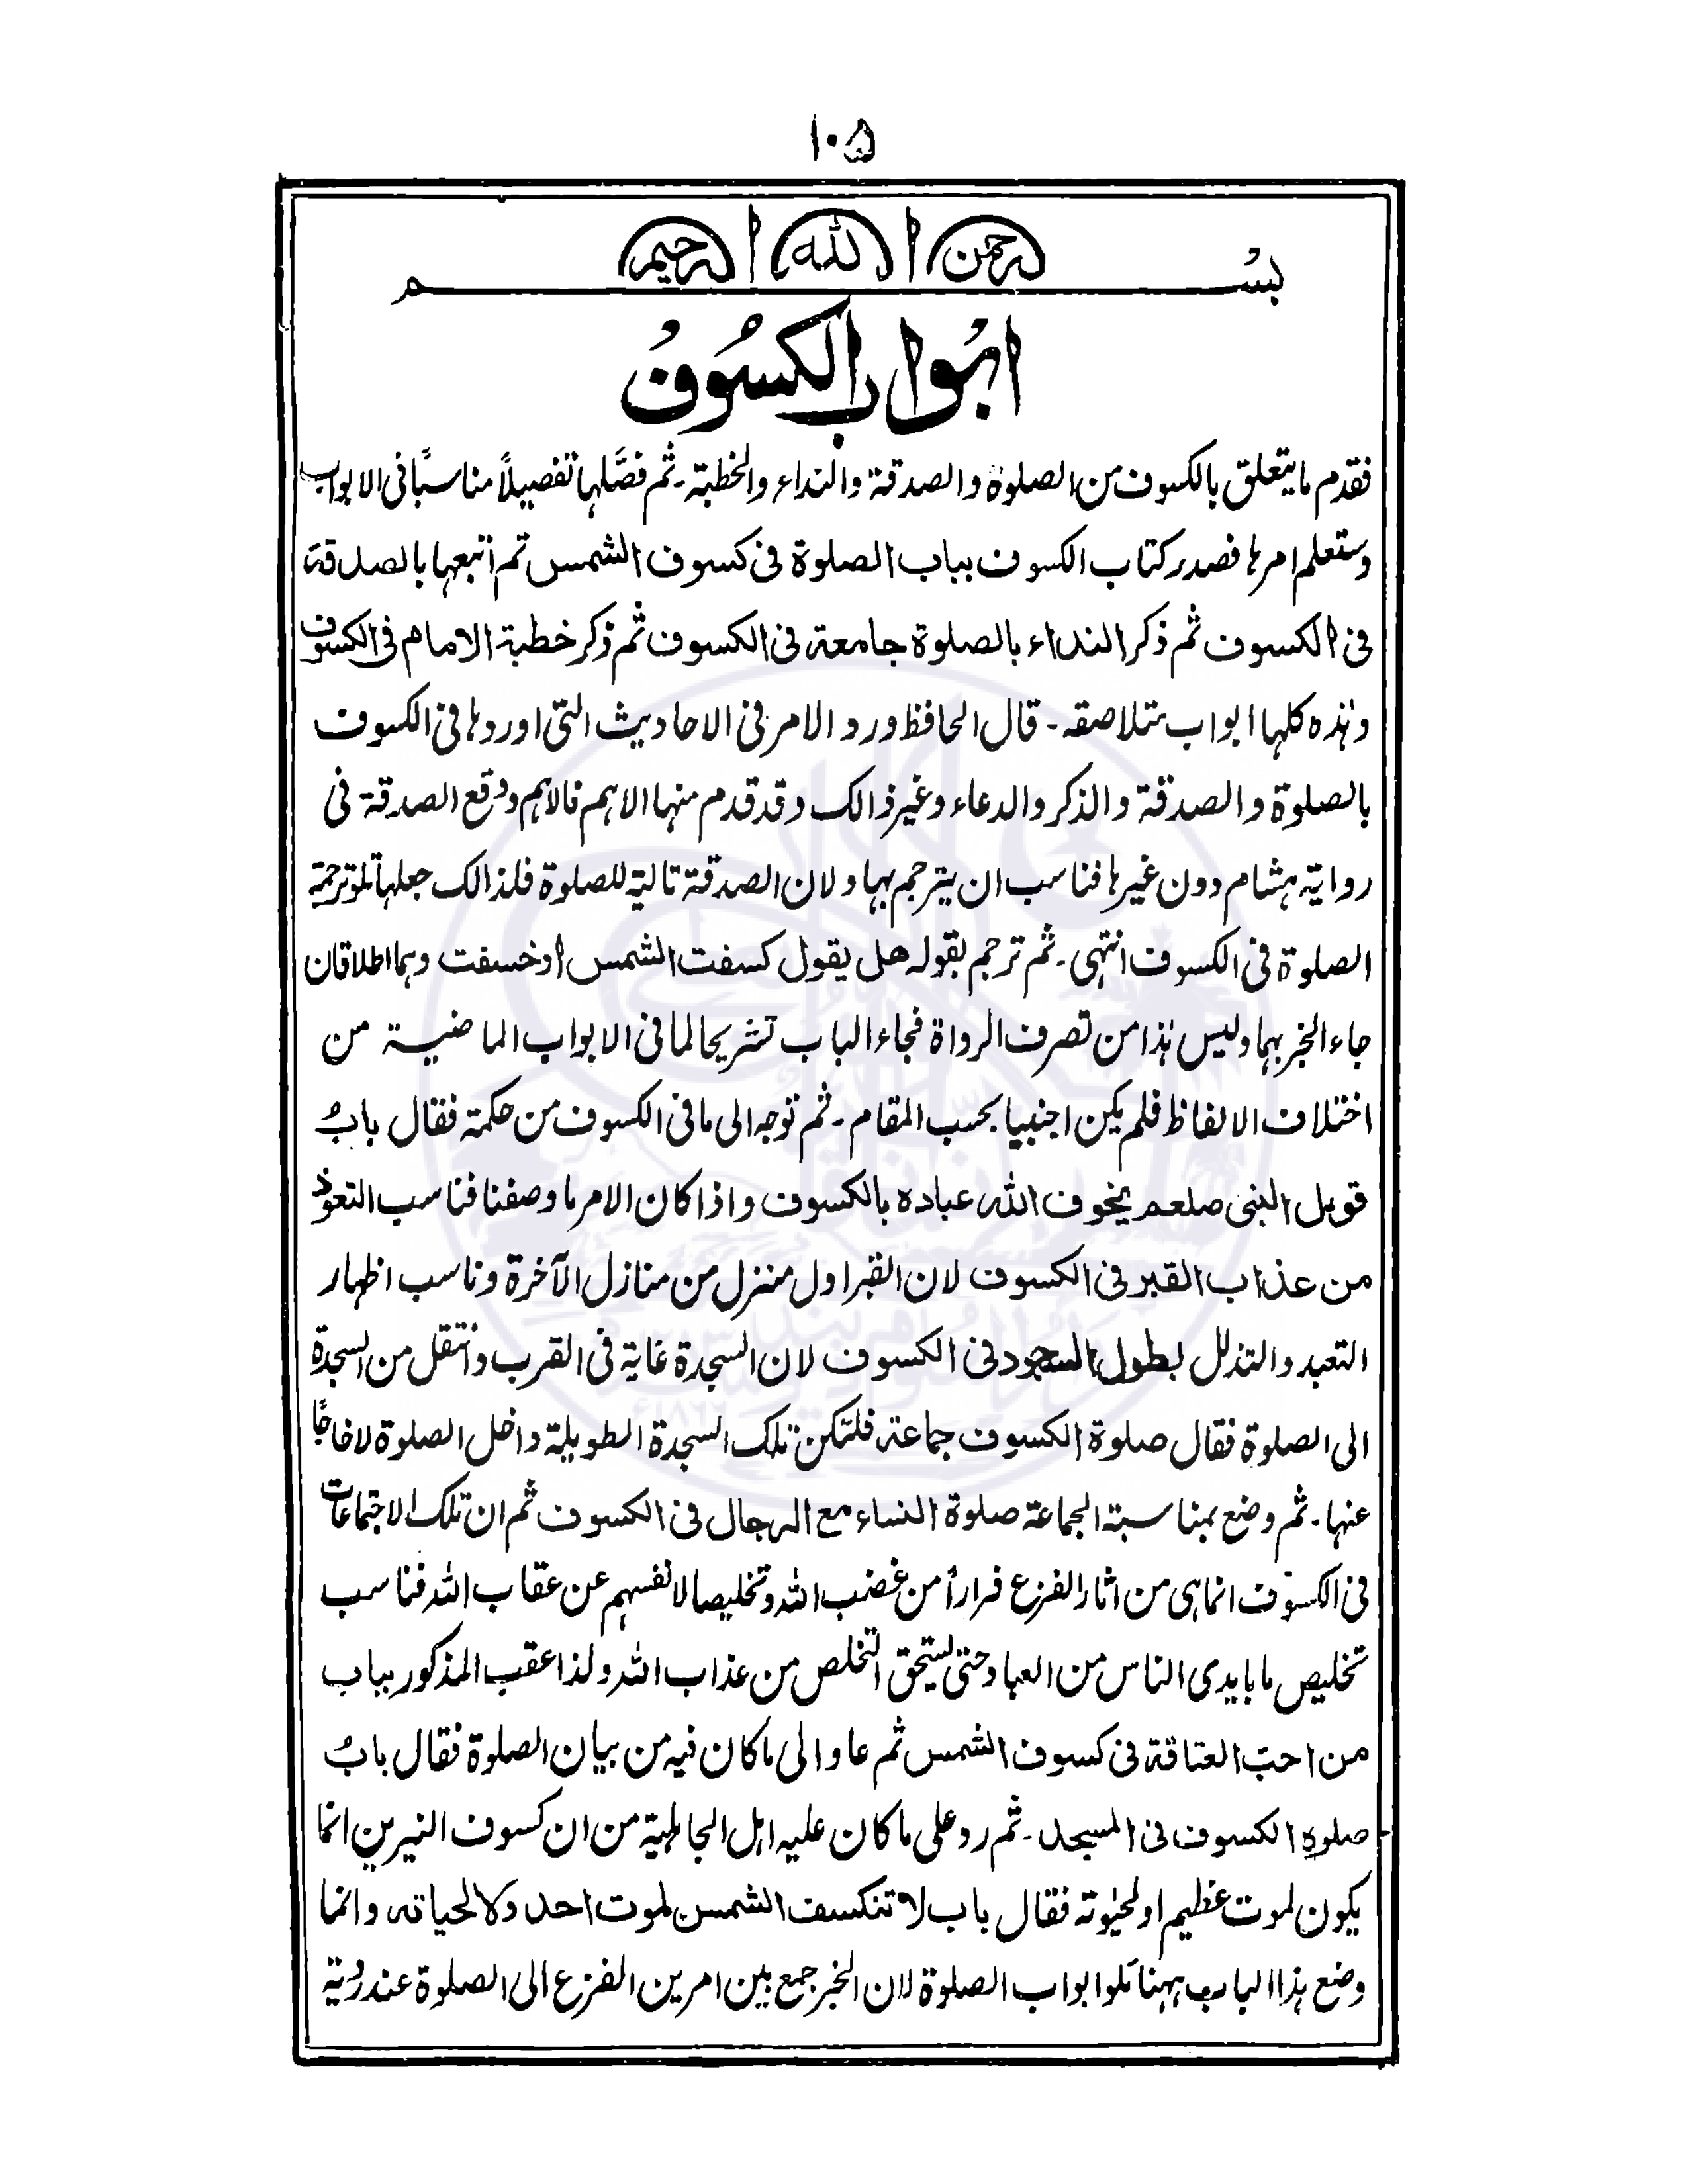 ۱۰۵
بسم الله الرحمن الرحيم
ابواب الكسوف
فقدم ما يتعلق بالكسوف من الصلوة والصدقة والنداء والخطبة ۔ ثم فصّلها تفصيلاً مناسبًا فى الابواب
وستعلم امرها فصدر كتاب الكسوف بباب الصلوة فى كسوف الشمس ثم اتبعها بالصدقة
فى الكسوف ثم ذكر النداء بالصلوة جامعة فى الكسوف ثم ذكر خطبة الامام فى الكسوف
وهٰذه كلها ابواب متلاصقه ۔ قال الحافظ ورد الامر فى الاحاديث التى اوردها فى الكسوف
بالصلوة والصدقة والذكر والدعاء وغير ذالك وقد قدم منها الاهم فالاهم ووقع الصدقة فى
رواية هشام دون غيرها فناسب ان يترجم بها ولان الصدقة تالية للصلوة فلذالك جعلها تلو ترجمة
الصلوة فى الكسوف انتهى ۔ ثم ترجم بقوله هل يقول كسفت الشمس أو خسفت وهما اطلاقان
جاء الخبر بهما وليس هٰذا من تصرف الرواة فجاء الباب تشريحا لما فى الابواب الماضية من
اختلاف الالفاظ فلم يكن اجنبيا بحسب المقام ۔ ثم توجه الى ما فى الكسوف من حكمة فقال بابُ
قول النبى صلعم يخوف الله عباده بالكسوف واذا كان الامر ما وصفنا فناسب التعوّذ
من عذاب القبر فى الكسوف لان القبر اول منزل من منازل الآخرة وناسب اظهار
التعبد والتذلل بطول السجود فى الكسوف لان السجدة غاية فى القرب وانتقل من السجدة
الى الصلوة فقال صلوة الكسوف جماعة فلتكن تلك السجدة الطويلة داخل الصلوة لا خارجًا
عنها ۔ ثم وضع بمناسبة الجماعة صلوة النساء مع الرجال فى الكسوف ثم ان تلك الاجتماعات
فى الكسوف انما هى من اٰثار الفزع فراراً من غضب الله وتخليصا لانفسهم عن عقاب الله فناسب
تخليص ما بايدى الناس من العباد حتى يستحق التخلص من عذاب الله ولذا عقب المذكور بباب
من احبّ العتاقة فى كسوف الشمس ثم عاد الى ما كان فيه من بيان الصلوة فقال بابُ
صلوة الكسوف فى المسجد ۔ ثم رد على ما كان عليه اهل الجاهلية من ان كسوف النيرين انما
يكون لموت عظيم او لحيٰوته فقال باب لا تنكسف الشمس لموت احد ولا لحياته وانما
وضع هٰذا الباب ههنا تلو ابواب الصلوة لان الخبر جمع بين امرين الفزع الى الصلوة عند رؤية